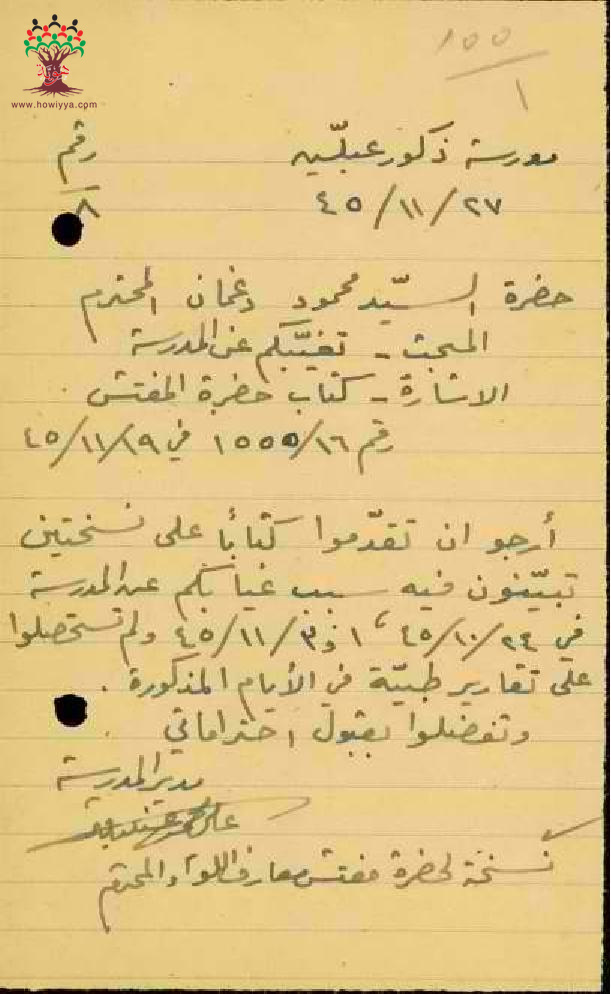 ١٥٥
١
www.howiyya.com
مدرسة ذكور عبلّين
رقم
٨
٢٧/١١/٤٥
حضرة السيّد محمود دغمان المحترم
المبحث - تغيّبكم عن المدرسة
الاشارة - كتاب حضرة المفتش
رقم ١٥٥٥/١٦ في ١٩/١١/٤٥
أرجو ان تقدّموا كتابًا على نسختين
تبيّنون فيه سبب غيابكم عن المدرسة
في ٢٤/١٠/٤٥، ١ و٣/١١/٤٥ ولم تستحصلوا
على تقارير طبيّة في الأيام المذكورة.
وتفضلوا بقبول احتراماتي
مدير المدرسة
نسخة لحضرة مفتش معارف اللواء المحترم